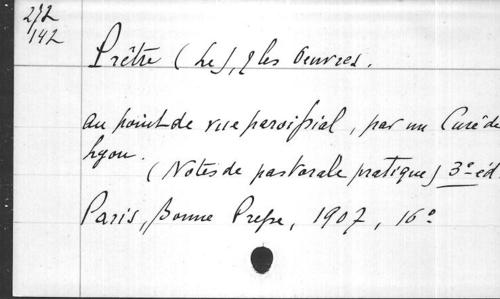 272
142
Prêtre (Le), & les Oeuvres.
au point de vue paroissial, par un Curé de
Lyon.
(Notes de pastorale pratique) 3º éd.
Paris, Bonne Presse, 1907, 16º